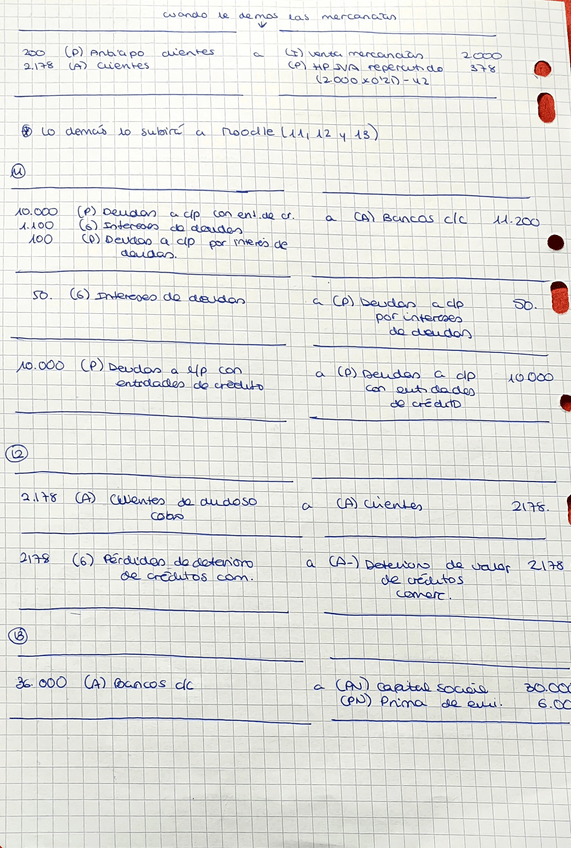 cuando le demos las mercancías
200 (P) Anticipo clientes a (I) venta mercancías 2000
2.178 (A) Clientes (P) HP IVA repercutido 378
(2000x0'21)-42
Lo demás lo subiré a Moodle (11, 12 y 13)
11
10.000 (P) Deudas a c/p con ent. de cr. a (A) Bancos c/c 11.200
1.100 (G) Intereses de deudas
100 (P) Deudas a c/p por interés de
deudas.
50. (G) Intereses de deudas a (P) Deudas a c/p 50.
por intereses
de deudas
10.000 (P) Deudas a l/p con a (P) Deudas a c/p 10.000
entidades de crédito con entidades
de crédito
12
2.178 (A) Clientes de dudoso a (A) Clientes 2178.
cobro
2178 (G) Pérdidas de deterioro a (A-) Deterioro de valor 2.178
de créditos com. de créditos
comerc.
13
36.000 (A) Bancos c/c a (PN) Capital social 30.000
(PN) Prima de emi. 6.00